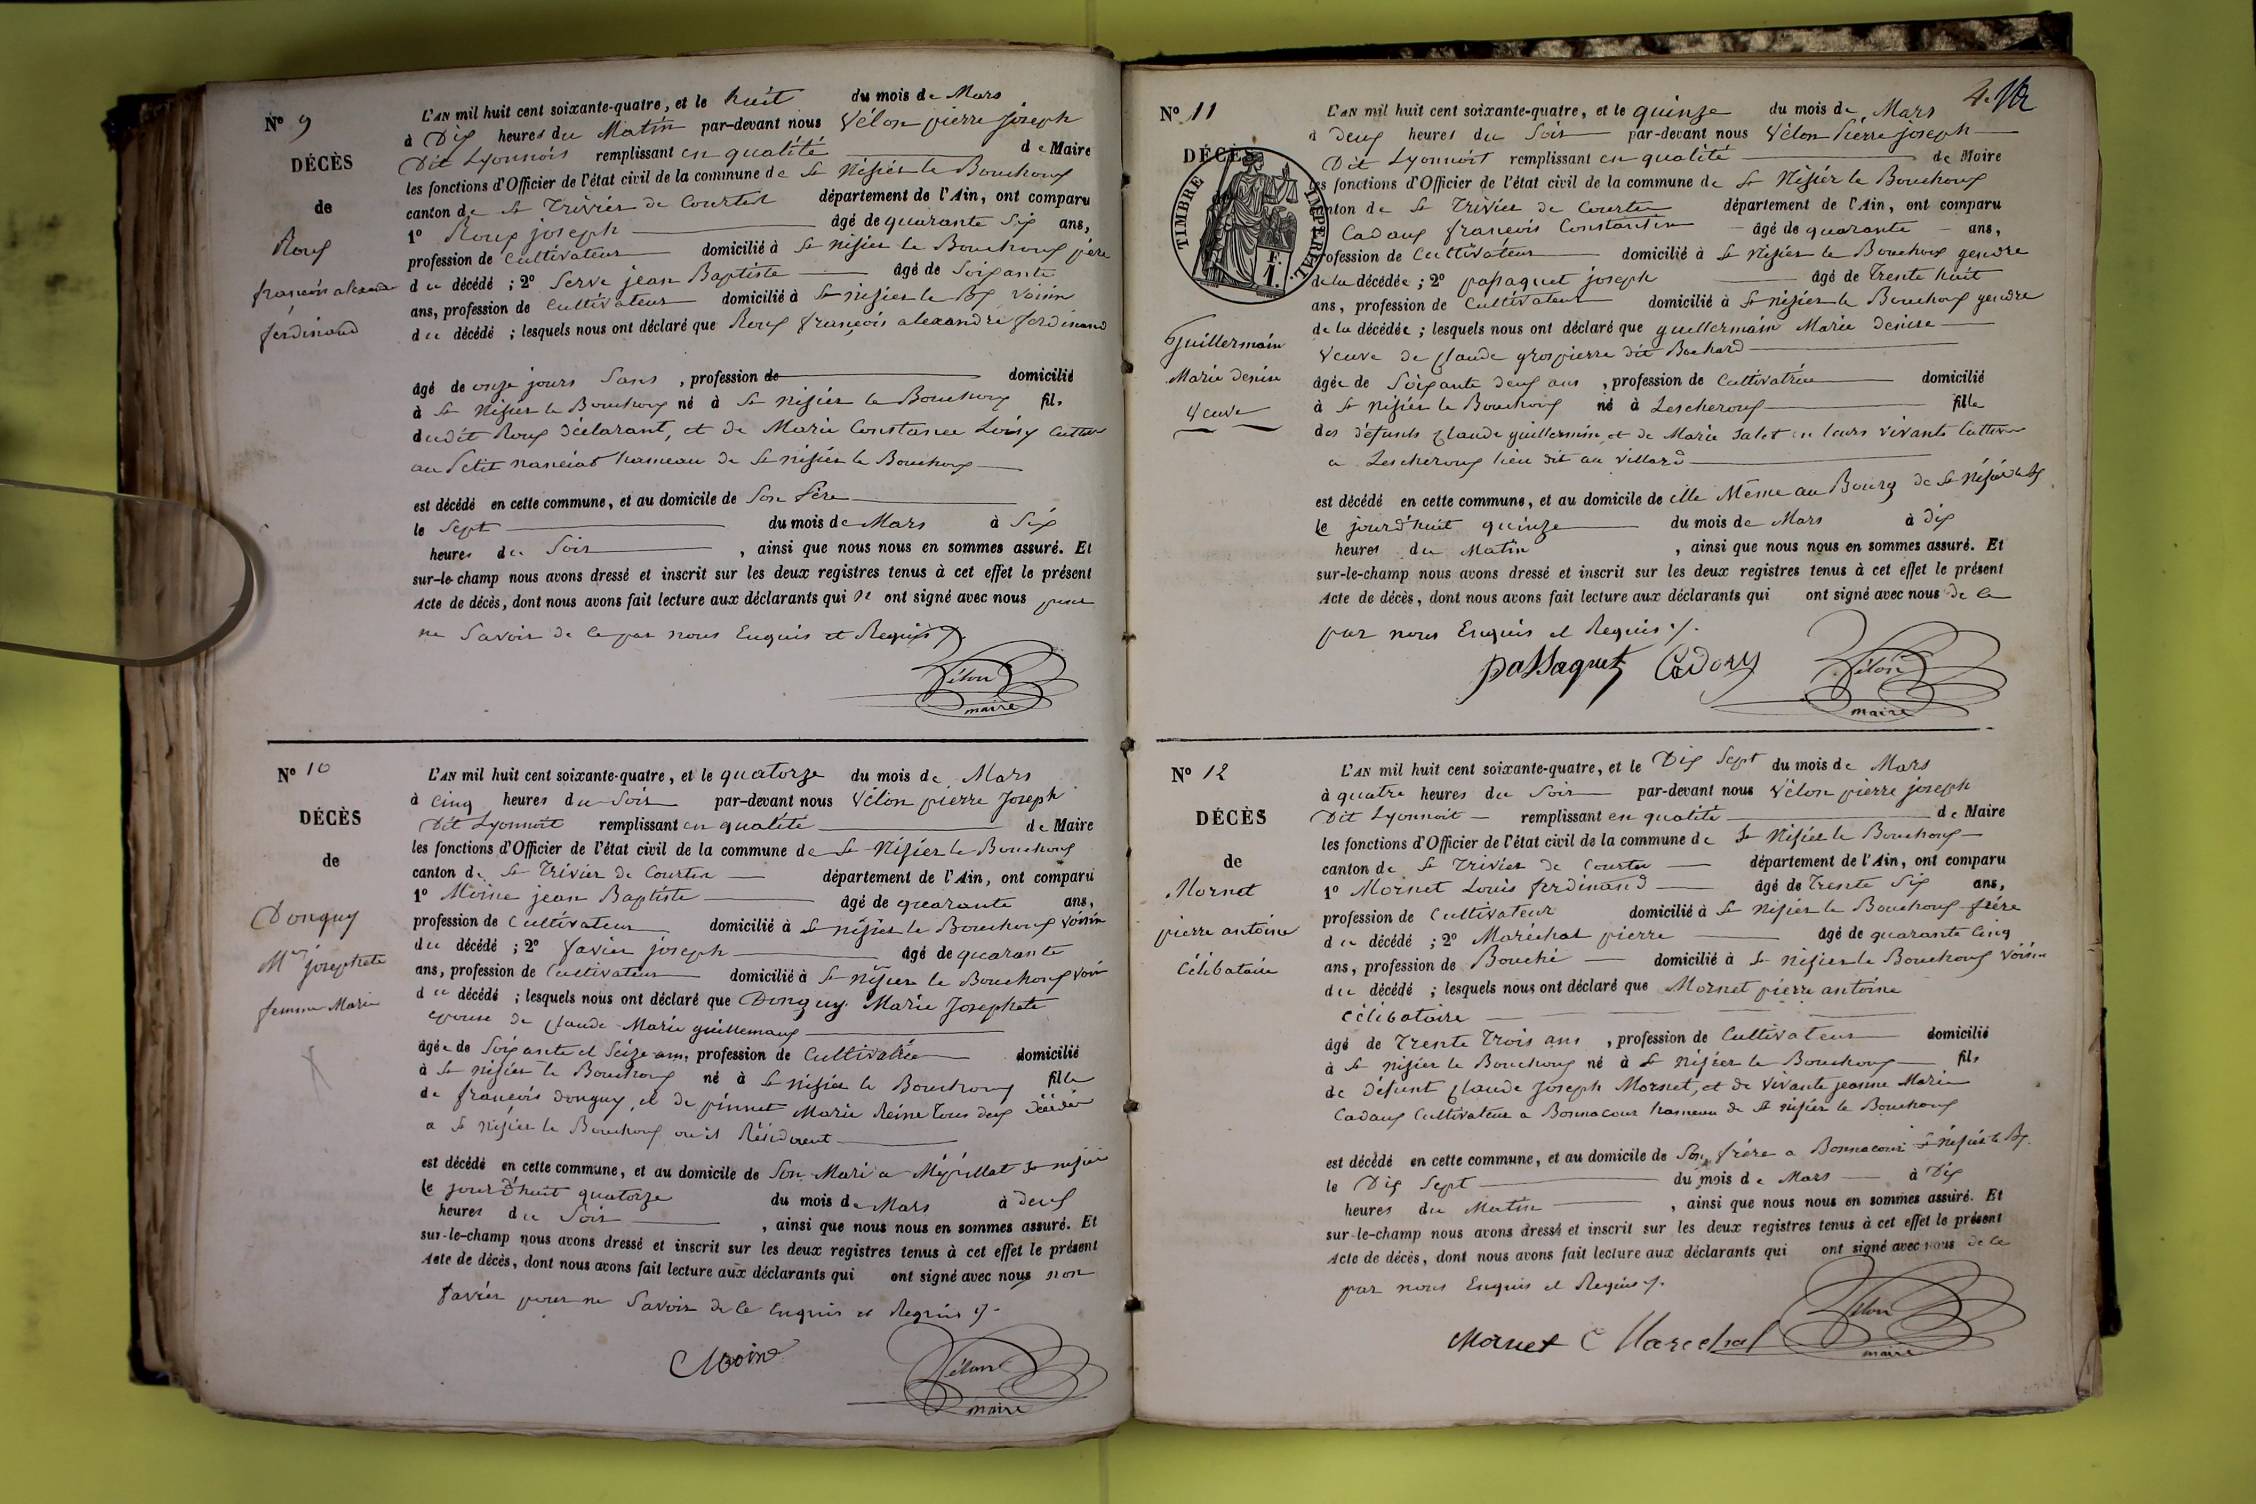 Nº 9
DÉCÈS
de
Roux
françois alexandre
ferdinand
L'AN mil huit cent soixante-quatre, et le huit du mois de Mars
à Dix heures du Matin par-devant nous Vélon pierre Joseph
Dit Lyonnois remplissant en qualité de Maire
les fonctions d'Officier de l'état civil de la commune de St Nisiér le Bouchoux
canton de St Triviér de Courtes département de l'Ain, ont comparu
1º Roux joseph âgé de quarante Six ans,
profession de Cultivateur domicilié à St nisiér le Bouchoux pére
du décédé ; 2º Serve jean Baptiste âgé de Soixante
ans, profession de Cultivateur domicilié à St nisiér le Bx voisin
du décédé ; lesquels nous ont déclaré que Roux françois alexandre ferdinand
âgé de onze jours Sans , profession de domicilié
à St Nisiér le Bouchoux né à St nisiér le Bouchoux fils
dudit Roux déclarant, et de Marie Constance Loisy Cultiv
au Petit nanciat hameau de St nisiér le Bouchoux
est décédé en cette commune, et au domicile de Son Pére
le Sept du mois de Mars à Six
heures du Soir , ainsi que nous nous en sommes assuré. Et
sur-le-champ nous avons dressé et inscrit sur les deux registres tenus à cet effet le présent
Acte de décès, dont nous avons fait lecture aux déclarants qui n' ont signé avec nous pour
ne Savoir de ce par nous Enquis et Requis
Vélon
maire
Nº 10
DÉCÈS
de
Donguy
Mie josephete
femme Marie
L'AN mil huit cent soixante-quatre, et le quatorze du mois de Mars
à Cinq heures du Soir par-devant nous Vélon pierre Joseph
Dit Lyonnoit remplissant en qualité de Maire
les fonctions d'Officier de l'état civil de la commune de St Nisiér le Bouchoux
canton de St Triviér de Courtes département de l'Ain, ont comparu
1º Moine jean Baptiste âgé de quarante ans,
profession de Cultivateur domicilié à St nisiér le Bouchoux voisin
du décédé ; 2º favier joseph âgé de quarante
ans, profession de Cultivateur domicilié à St nisiér le Bouchoux voisin
du décédé ; lesquels nous ont déclaré que Donguy Marie Josephete
epouse de Claude Marie guillemaux
âgée de Soixante et Seize ans, profession de Cultivatrice domicilié
à St nisiér le Bouchoux né à St nisiér le Bouchoux fille
de françois donguy, et de pinnet Marie Reine Tous deux décédés
a St Nisiér le Bouchoux ou il Résidoient
est décédé en cette commune, et au domicile de Son Mari a Mépillat St nisiér
le jourd'huit quatorze du mois de Mars à deux
heures du Soir , ainsi que nous nous en sommes assuré. Et
sur-le-champ nous avons dressé et inscrit sur les deux registres tenus à cet effet le présent
Acte de décès, dont nous avons fait lecture aux déclarants qui ont signé avec nous non
favier pour ne Savoir de ce Enquis et Requis
Moine
Vélon
maire
Nº 11
DÉCÈS
TIMBRE IMPERIAL.
F.
1.
Guillermain
Marie denise
Veuve
L'AN mil huit cent soixante-quatre, et le quinze du mois de Mars
à deux heures du Soir par-devant nous Vélon Pierre joseph
Dit Lyonnoit remplissant en qualité de Maire
les fonctions d'Officier de l'état civil de la commune de St Nisiér le Bouchoux
canton de St Triviér de Courtes département de l'Ain, ont comparu
Cadoux françois Constantin âgé de quarante ans,
profession de Cultivateur domicilié à St Nisiér le Bouchoux gendre
de la décédée ; 2º passaquet joseph âgé de Trente huit
ans, profession de Cultivateur domicilié à St nisiér le Bouchoux gendre
de la décédée ; lesquels nous ont déclaré que guillermain Marie denise
veuve de Claude grospierre dit Bochard
âgée de Soixante deux ans , profession de Cultivatrice domicilié
à St nisiér le Bouchoux né à Lescheroux fille
des défunts Claude guillermin et de Marie Salet en leurs vivants Cultiv
a Lescheroux lieu dit au villard
est décédé en cette commune, et au domicile de elle Même au Bourg de St Nisiér le Bx
le jourd'huit quinze du mois de Mars à dix
heures du Matin , ainsi que nous nous en sommes assuré. Et
sur-le-champ nous avons dressé et inscrit sur les deux registres tenus à cet effet le présent
Acte de décès, dont nous avons fait lecture aux déclarants qui ont signé avec nous de ce
par nous Enquis et Requis
passaquet Cadoux Vélon
maire
Nº 12
DÉCÈS
de
Mornet
pierre antoine
Célibataire
L'AN mil huit cent soixante-quatre, et le Dix Sept du mois de Mars
à quatre heures du Soir par-devant nous Vélon pierre joseph
Dit Lyonnoit remplissant en qualité de Maire
les fonctions d'Officier de l'état civil de la commune de St Nisiér le Bouchoux
canton de St Triviér de Courtes département de l'Ain, ont comparu
1º Mornet Louis ferdinand âgé de Trente Six ans,
profession de Cultivateur domicilié à St Nisiér le Bouchoux frére
du décédé ; 2º Maréchal pierre âgé de quarante Cinq
ans, profession de Bouché domicilié à St nisiér le Bouchoux voisin
du décédé ; lesquels nous ont déclaré que Mornet pierre antoine
Célibataire
âgé de Trente Trois ans , profession de Cultivateur domicilié
à St nisiér le Bouchoux né à St Nisiér le Bouchoux fils
de défunt Claude Joseph Mornet, et de vivante jeanne Marie
Cadoux Cultivateur a Bonnacour hameau de St nisiér le Bouchoux
est décédé en cette commune, et au domicile de Son frére a Bonnacour St Nisiér le Bx
le Dix Sept du mois de Mars à Dix
heures du Matin , ainsi que nous nous en sommes assuré. Et
sur-le-champ nous avons dressé et inscrit sur les deux registres tenus à cet effet le présent
Acte de décès, dont nous avons fait lecture aux déclarants qui ont signé avec nous de ce
par nous Enquis et Requis
Mornet Marechal Vélon
maire